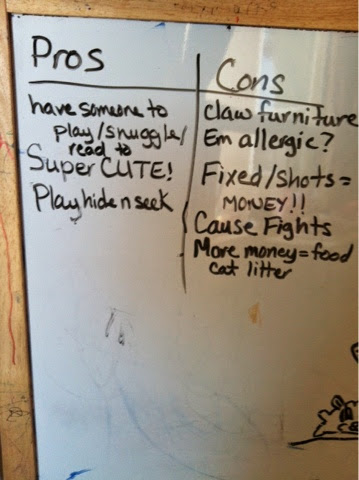 Pros
have someone to
play/snuggle/
read to
Super CUTE!
Play hide n seek
Cons
Claw furniture
Em allergic?
Fixed/shots =
MONEY!!
Cause Fights
More money = food
cat litter